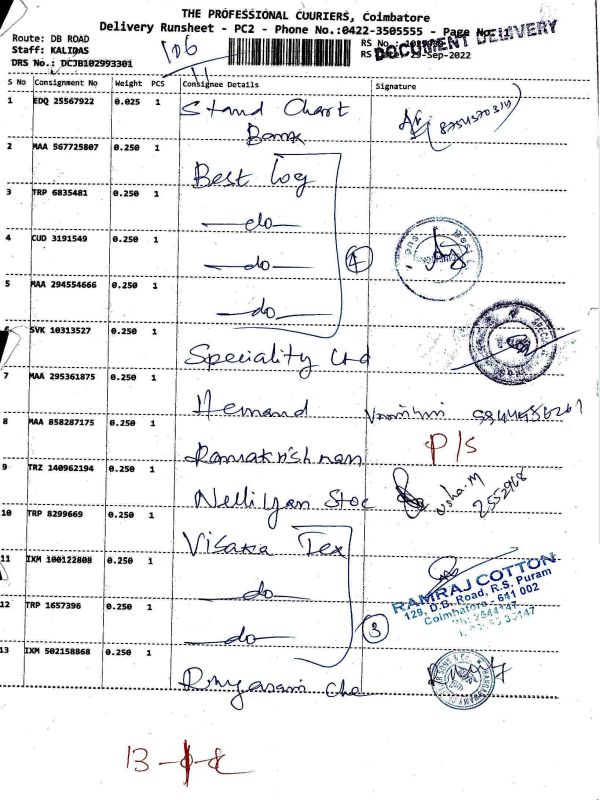 THE PROFESSIONAL COURIERS, Coimbatore
Delivery Runsheet - PC2 - Phone No.:0422-3505555 - Page No: 1
Route: DB ROAD
Staff: KALIDAS
DRS No.: DCJB102993301
106
RS No.
RS
29-Sep-2022
DOCUMENT DELIVERY
S No Consignment No Weight PCS Consignee Details Signature
1 EDQ 25567922 0.025 1 Stand Chart Bank
2 MAA 567725807 0.250 1 Best Log
3 TRP 6835481 0.250 1 do
4 CUD 3191549 0.250 1 do
4
5 MAA 294554666 0.250 1 do
6 SVK 10313527 0.250 1 Speciality Ltd
7 MAA 295361875 0.250 1 Hemand
8 MAA 858287175 0.250 1 Ramakrishnan P/S
9 TRZ 140962194 0.250 1 Nelliyan Stoe Usha.M 2552968
10 TRP 8299669 0.250 1 Visaka Tex
11 IXM 100122808 0.250 1 do
RAMRAJ COTTON
129, D.B. Road, R.S. Puram
Coimbatore - 641 002
12 TRP 1657396 0.250 1 do
3
13 IXM 502158868 0.250 1